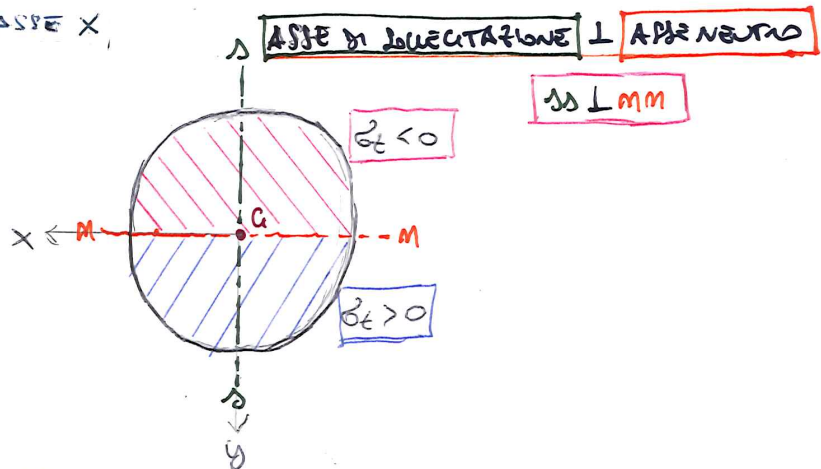 ASSE X,
s ASSE DI SOLLECITAZIONE ⊥ ASSE NEUTRO
ss ⊥ nn
σz < 0
G
X n n
σz > 0
s
y